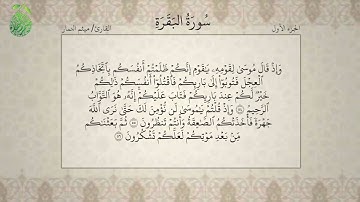 الجزء الأول
سُورَةُ البَقَرَة
القارئ/ ميثم التمار
وَإِذْ قَالَ مُوسَىٰ لِقَوْمِهِۦ يَٰقَوْمِ إِنَّكُمْ ظَلَمْتُمْ أَنفُسَكُم بِٱتِّخَاذِكُمُ
ٱلْعِجْلَ فَتُوبُوٓا۟ إِلَىٰ بَارِئِكُمْ فَٱقْتُلُوٓا۟ أَنفُسَكُمْ ذَٰلِكُمْ
خَيْرٌ لَّكُمْ عِندَ بَارِئِكُمْ فَتَابَ عَلَيْكُمْ إِنَّهُۥ هُوَ ٱلتَّوَّابُ
ٱلرَّحِيمُ ٥٤ وَإِذْ قُلْتُمْ يَٰمُوسَىٰ لَن نُّؤْمِنَ لَكَ حَتَّىٰ نَرَى ٱللَّهَ
جَهْرَةً فَأَخَذَتْكُمُ ٱلصَّٰعِقَةُ وَأَنتُمْ تَنظُرُونَ ٥٥ ثُمَّ بَعَثْنَٰكُم
مِّنۢ بَعْدِ مَوْتِكُمْ لَعَلَّكُمْ تَشْكُرُونَ ٥٦